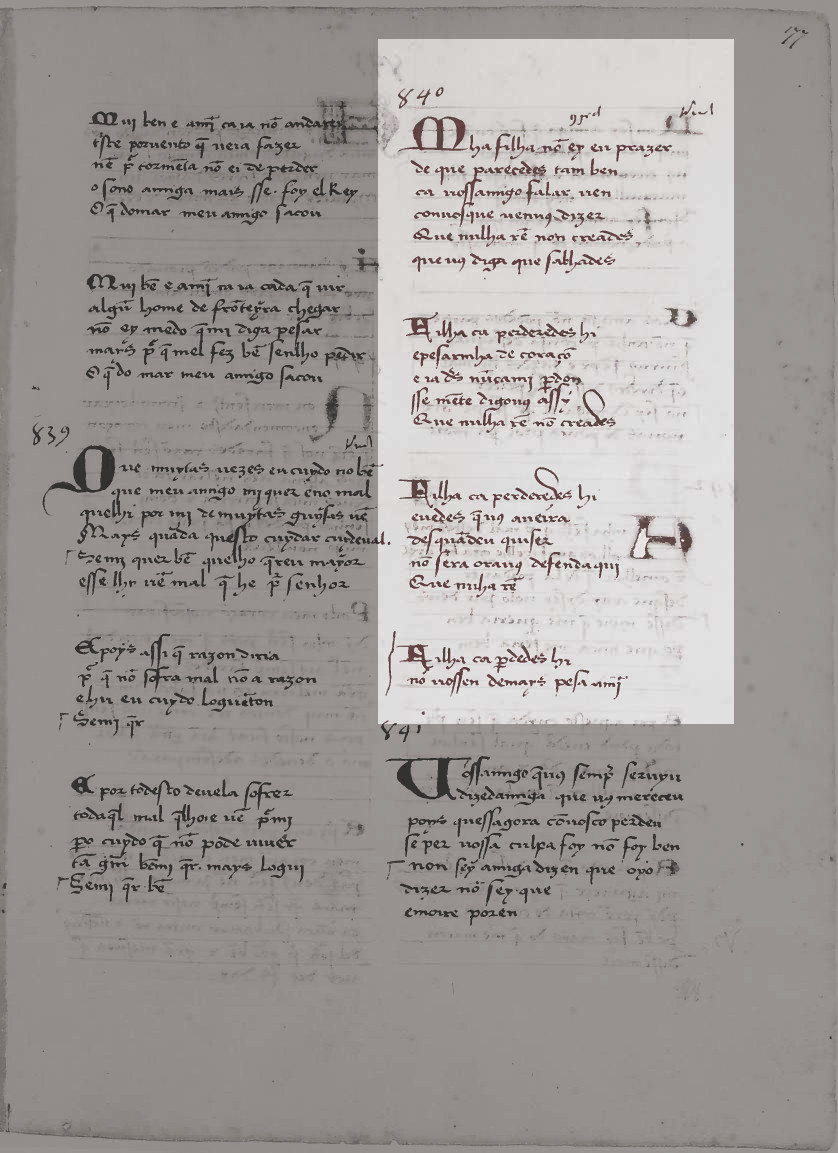 177
Muj ben e amĩ ca ia nō andarey
tr̄ste por uento q̄ ueia fazer
nē p̄ tormēta nō ei de perder
o sono amiga mais sse foy el Rey
O q̄ domar meu amigo sacou
Muj bē e amĩ ca ia cada q̄ uir
algū home de frōteyra chegar
nō ey medo q̄ mi diga pesar
mays p̄ q̄ mel fez bē senlho pedir
O q̄ do mar meu amigo sacou
839
Que muytas uezes eu cuydo no bē
que meu amigo mi quer e no mal
quelhi por mi de muytas guysas uē
Mays quāda questo cuydar cuydeual.
Semi quer bē quelho q̄reu mayor
esse lhi uē mal q̄ he p̄ senhor
E poys assi q̄ razon diria
p̄ q̄ nō sofra mal nō a razon
e hu eu cuydo loguētō
Semi q̄r
E por todesto deuela sofrer
todaq̄l mal q̄lhoie uē p̄mi
pero cuydo q̄ nō pode uiuer
tā gm̄ bēmi q̄r mays logui
Semi q̄r bē
840
Mha filha nō ey eu prazer
de que parecedes tam ben
ca uossamigo falar uen
conuosque uennus dizer
Que nulha rē non creades
que uꝯ diga que sabhades
Filha ca perderedes hi
e pesarmha de coraçō
e ia ds̄ nūca mi perdon
sse mēte digouꝯ assy
Que nulha rē nō creades
Filha ca perderedes hi
e uedes q̄ uꝯ aueira
des quādeu quiser
nō sera orauꝯ defenda qui
Que nuha rē
Filha ca p̄dedes hi
nō uossen demays pesa amĩ
841
Vossamigo q̄ uꝯ semp̄ seruyu
dizedamiga que uꝯ mereceu
poys quessagora cōuosco perdeu
se per uossa culpa foy nō foy ben
non sey amiga dizen que oyo
dizer nō sey que
e moire poren